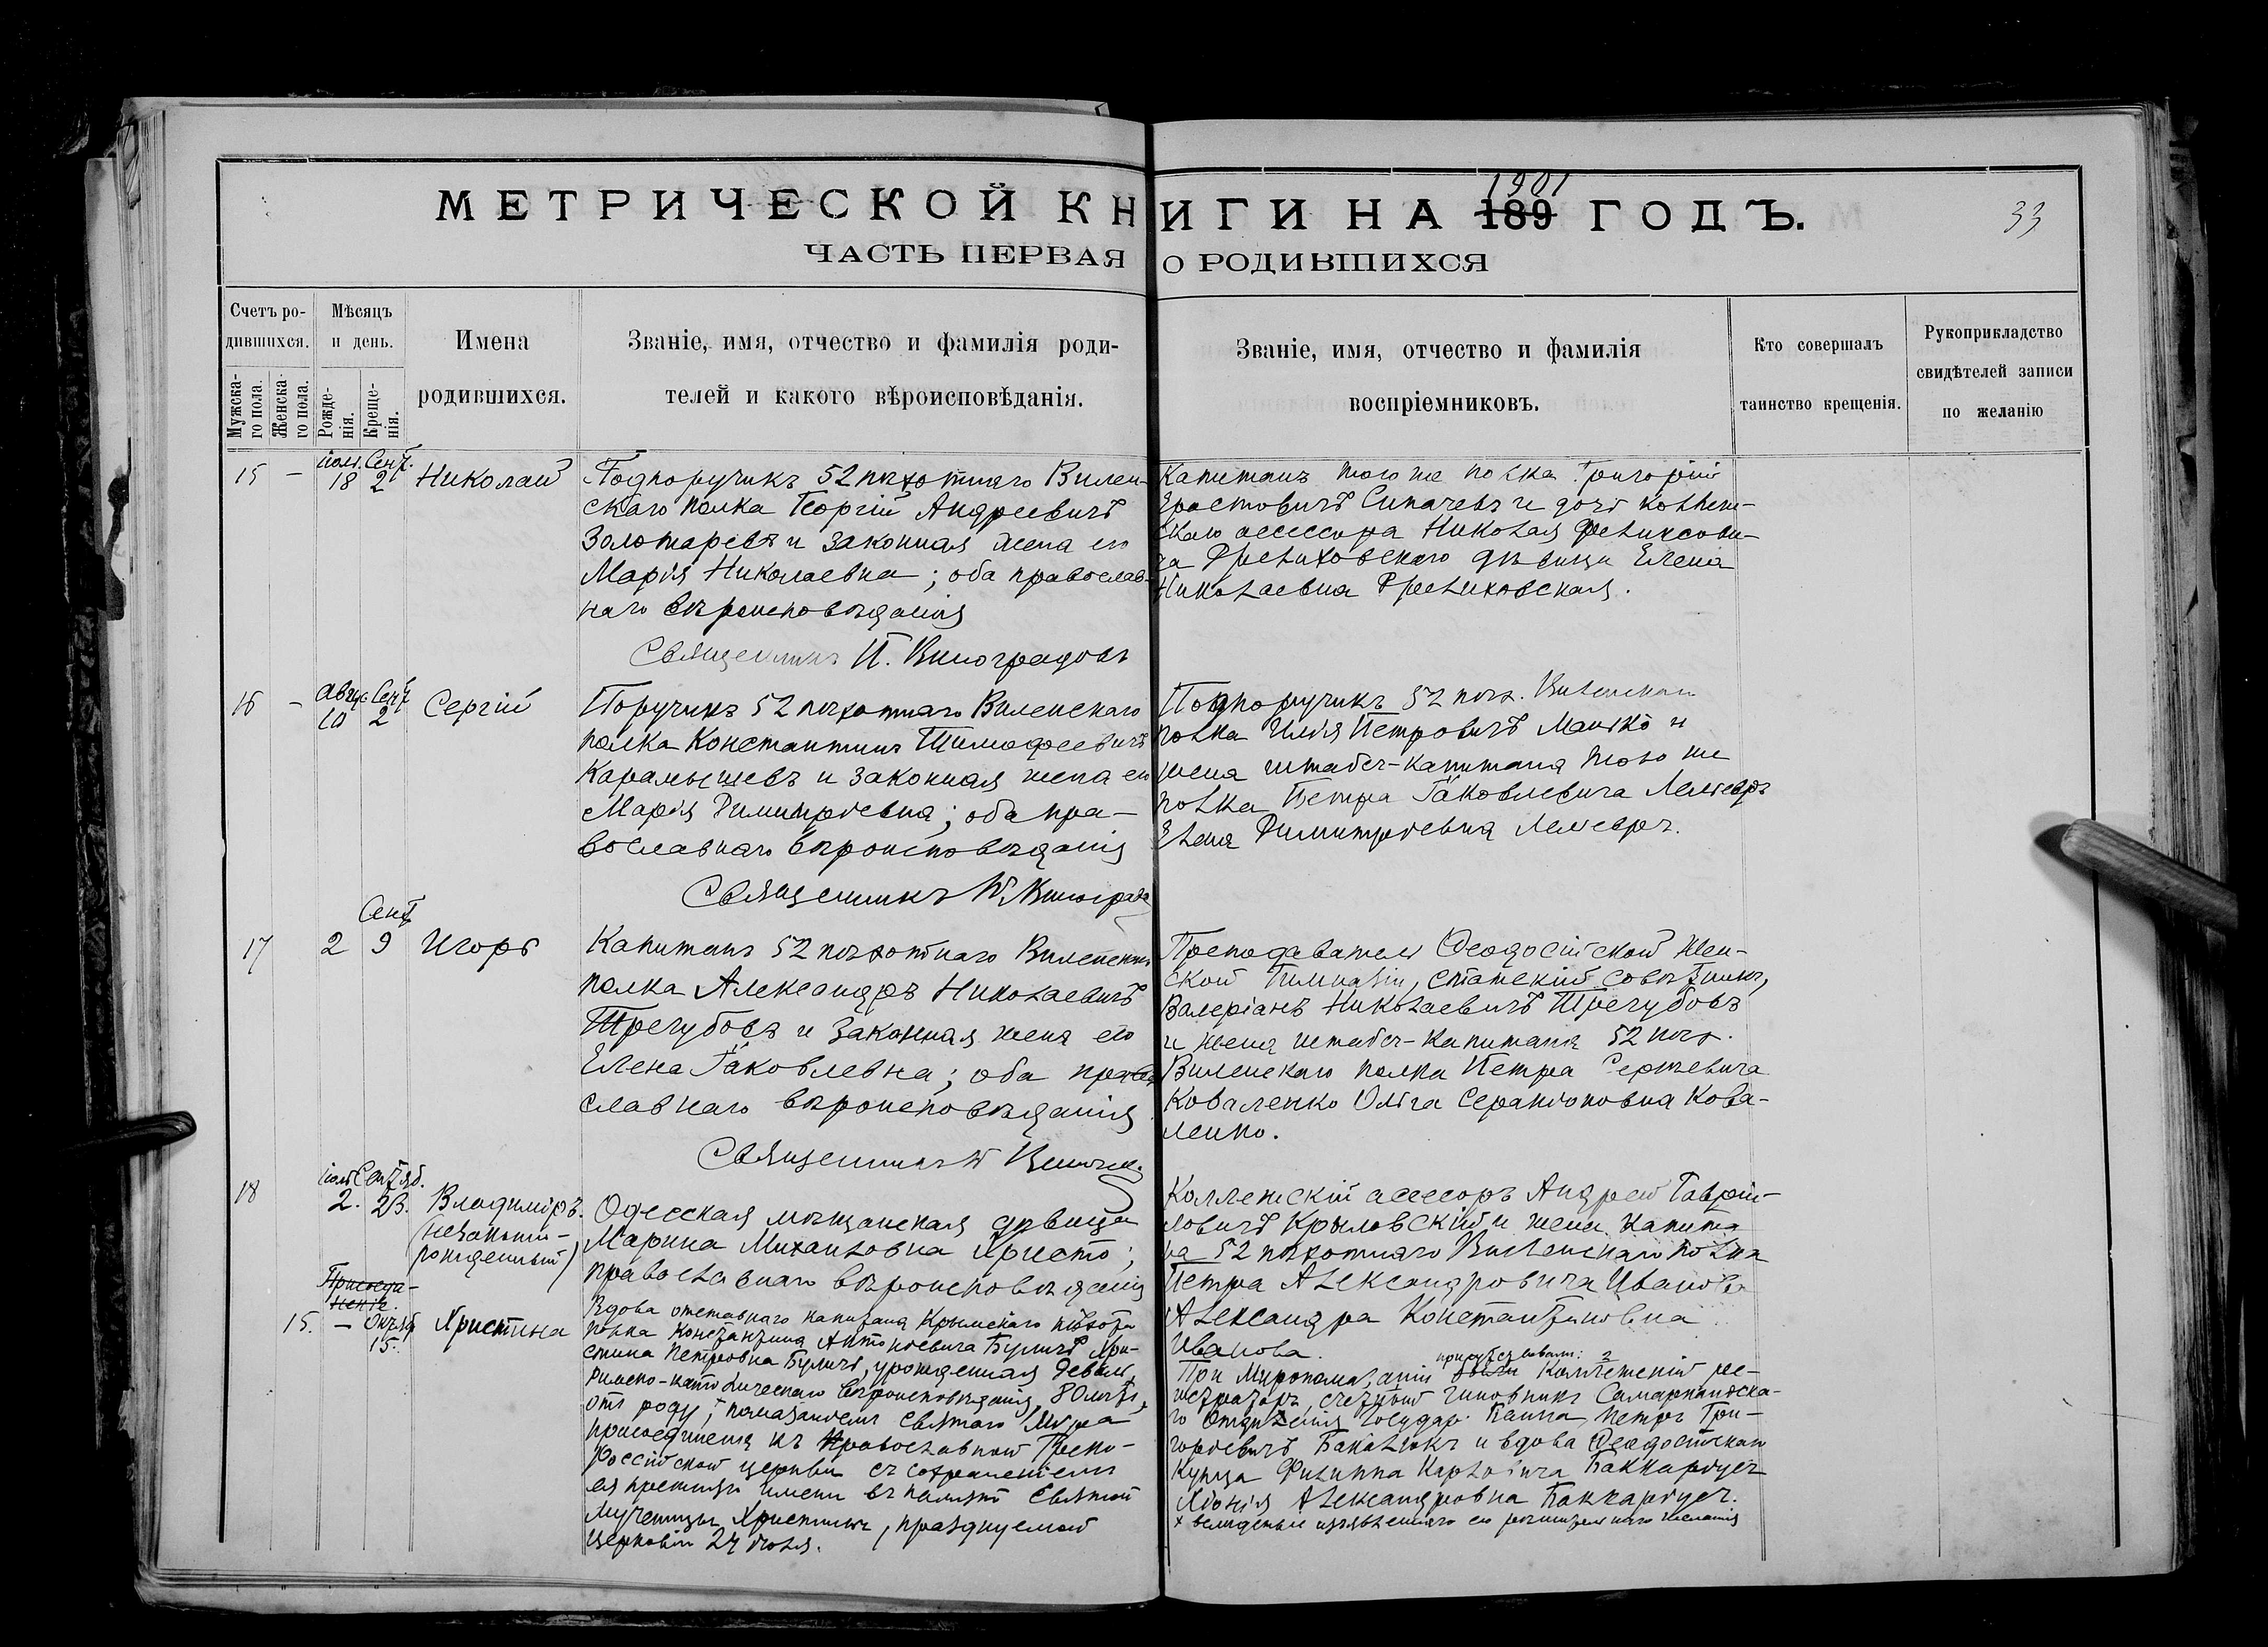 МЕТРИЧЕСКОЙ КНИГИ НА 189 1901 ГОДЪ.
33
ЧАСТЬ ПЕРВАЯ О РОДИВШИХСЯ
Счетъ ро-
дившихся.
Мужска-
го пола.
Женска-
го пола.
Мѣсяцъ
и день.
Рожде-
нія.
Креще-
нія.
Имена
родившихся.
Званіе, имя, отчество и фамилія роди-
телей и какого вѣроисповѣданія.
Званіе, имя, отчество и фамилія
воспріемниковъ.
Кто совершалъ
таинство крещенія.
Рукоприкладство
свидѣтелей записи
по желанію
15 – Сент.
18 2 Николай
Подпоручикъ 52 пѣхотнаго Вилен-
скаго полка Георгій Андреевичъ
Золотаревъ и законная жена его
Марія Николаевна; оба православ-
наго вѣроисповѣданія
Священникъ Виноградовъ
Капитанъ того же полка Григорій
Ерастовичъ Сипачевъ и дочь коллеж-
скаго ассессора Николая Феликсови-
ча Фрелиховскаго дѣвица Елена
Николаевна Фрелиховская.
16 – Авгус Сент
10 2 Сергій
Поручикъ 52 пѣхотнаго Виленскаго
полка Константинъ Тимофеевичъ
Карамышевъ и законная жена его
Марія Димитріевна; оба пра-
вославнаго вѣроисповѣданія
Священникъ Виноградо
Подпоручикъ 52 пѣх. Виленскаго
полка Илія Петровичъ и
жена штабсъ-капитана того же
полка Петра Іаковлевича
Елена Димитріевна
Сент
17 2 9 Игорь
Капитанъ 52 пѣхотнаго Виленскаго
полка Александръ Николаевичъ
Трегубовъ и законная жена его
Елена Іаковлевна; оба право
славнаго вѣроисповѣданія
Священникъ
Преподаватель Ѳеодосійской Жен-
ской Гимназіи, статскій совѣтникъ,
Валеріанъ Николаевичъ Трегубовъ
и жена штабсъ-капитана 52 пѣх.
Виленскаго полка Петра Сергѣевича
Коваленко Ольга Серапіоновна Кова-
ленко.
18 Сентяб.
2. 23. Владиміръ.
(незаконно-
рожденный)
Одесская мѣщанская дѣвица
Марина Михаиловна Христо;
православнаго вѣроисповѣданія
Коллежскій ассесоръ Андрей Гаврій-
ловичъ Крыловскій и жена капита
на 52 пѣхотнаго Виленскаго полка
Петра Александровича Иванова
Александра Константиновна
Иванова.
Присоеди-
неніе.
15. – Октяб Христина
15.
Вдова отставнаго капитана Крымскаго пѣхотн
полка Константина Антоновича Буличъ Хри-
стина Петровна Буличъ, урожденная
Римско-католическаго вѣроисповѣданія, 80 лѣтъ
отъ роду, помазаніемъ Святаго Мѵра
присоединена къ Православной Греко-
Россійской церкви съ сохраненіемъ
ея прежняго имени въ память Святой
Мученицы Христины, празднуемой
церковію 24 іюля.
При Миропомазаніи были присутствовали: Коллежскій ре-
гистраторъ, счетный чиновникъ Самаркандска-
го Отдѣленія Государ. Банка Петръ Гри-
горьевичъ Бакалюкъ и вдова Ѳеодосійскаго
Купца Филиппа Карловича
Хіонія Александровна
х вслѣдствіе изъявленнаго ею желанія